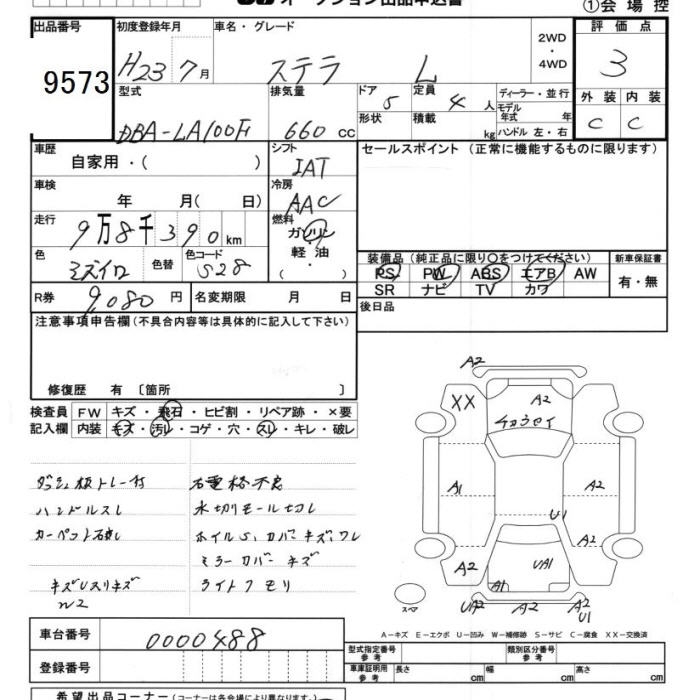 オークション出品申込書 ①会場控
出品番号 初度登録年月 車名・グレード 2WD・4WD 評価点
9573 H23 7月 ステラ L 3
型式 排気量 ドア 5 定員 4 人 ディーラー・並行 外装 内装
DBA-LA100F 660 cc 形状 積載 kg モデル年式 年 C C
ハンドル 左・右
車歴 シフト セールスポイント (正常に機能するものに限ります)
自家用・( ) IAT
車検 冷房
年 月( 日) AAC
走行 燃料
9万8千390km ガソリン・軽油・( )
色 色替 色コード 装備品(純正品に限り○をつけてください) 新車保証書
ミズイロ S28 PS PW ABS エアB AW 有・無
SR ナビ TV カワ
R券 9,080円 名変期限 月 日 後日品
注意事項申告欄(不具合内容等は具体的に記入して下さい)
修復歴 有 〔箇所 〕
検査員 FW キズ・飛石・ヒビ割・リペア跡・×要
記入欄 内装 キズ・汚レ・コゲ・穴・スレ・キレ・破レ
A2
XX A2
A1 A2
U1
A2
A2 UA1 A2
A1
スペア UA2 A2
U1
ハンドルスレ 水切りモール切レ
ミラーカバーキズ
ライトクモリ
A-キズ E-エクボ U-凹み W-補修跡 S-サビ C-腐食 XX-交換済
車台番号 0000488
登録番号
型式指定番号 参考 類別区分番号 参考
車庫証明用 参考 長さ cm 幅 cm 高さ cm
希望出品コーナー(コーナーは各会場により異なります。)